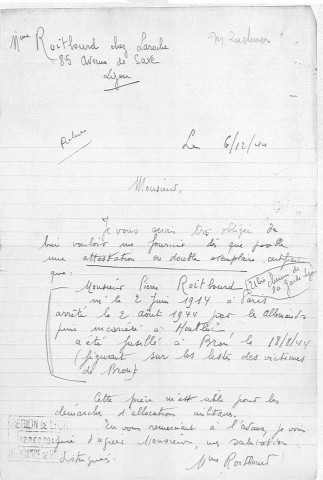 Mme Roitbourd chez Laroche
85 Avenue de Saxe
Lyon
Le 6/12/44
Monsieur,
Je vous serais très obligée de
bien vouloir me fournir dès que possible
une attestation en double exemplaire certifiant
que:
Monsieur Pierre Roitbourd
né le 2 Juin 1914 à Paris
arrêté le 2 Août 1944 par les Allemands
puis incarcéré à Montluc
a été fusillé à Bron le 18/8/44
(figurant sur les listes des victimes
de Bron)
Cette pièce m'est utile pour les
démarches d'allocations militaires.
En vous remerciant à l'avance, je vous
prie d'agréer Monsieur, mes salutations
distinguées.
Mme Roitbourd